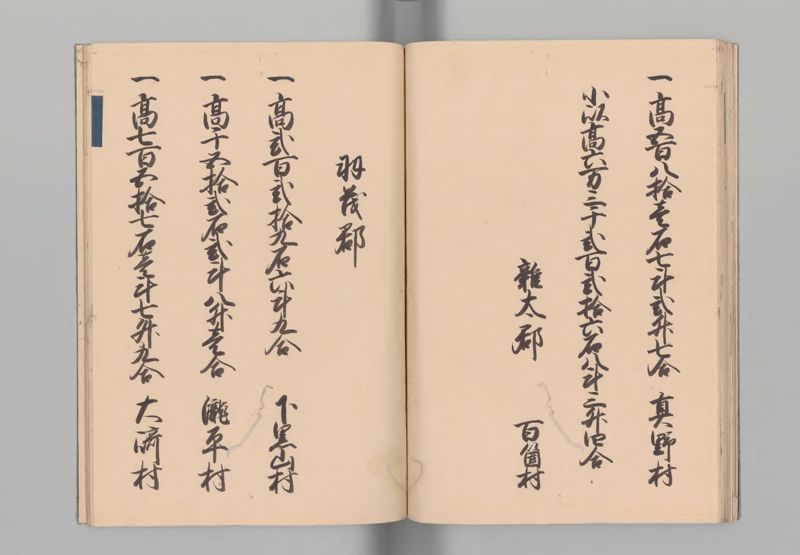 一高五百八拾壱石七斗弐升七合　真野村
小以高六万三千弐百弐拾六石八斗三升四合
雑太郡　百箇村
羽茂郡
一高弐百弐拾九石六斗九合　下黒山村
一高千五拾弐石弐斗八升壱合　瀧平村
一高七百五拾七石壱斗七升九合　大崎村